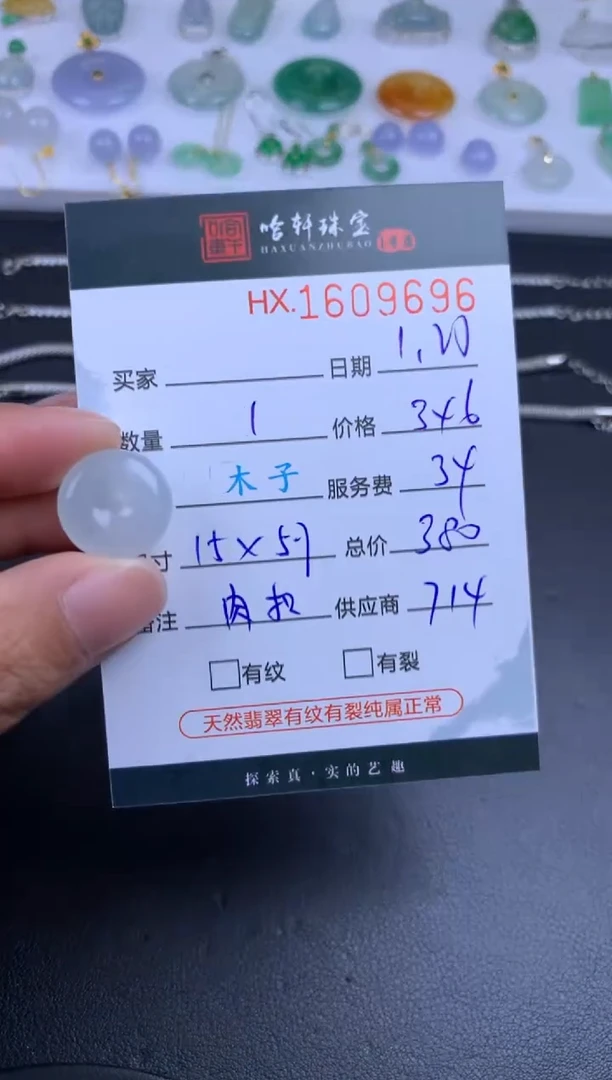 哈轩珠宝
HAXUANZHUBAO
HX.1609696
买家 日期 1.20
数量 1 价格 346
木子 服务费 34
寸 15×5.7 总价 380
备注 肉扣 供应商 714
有纹 有裂
天然翡翠有纹有裂纯属正常
探索真·实的艺趣